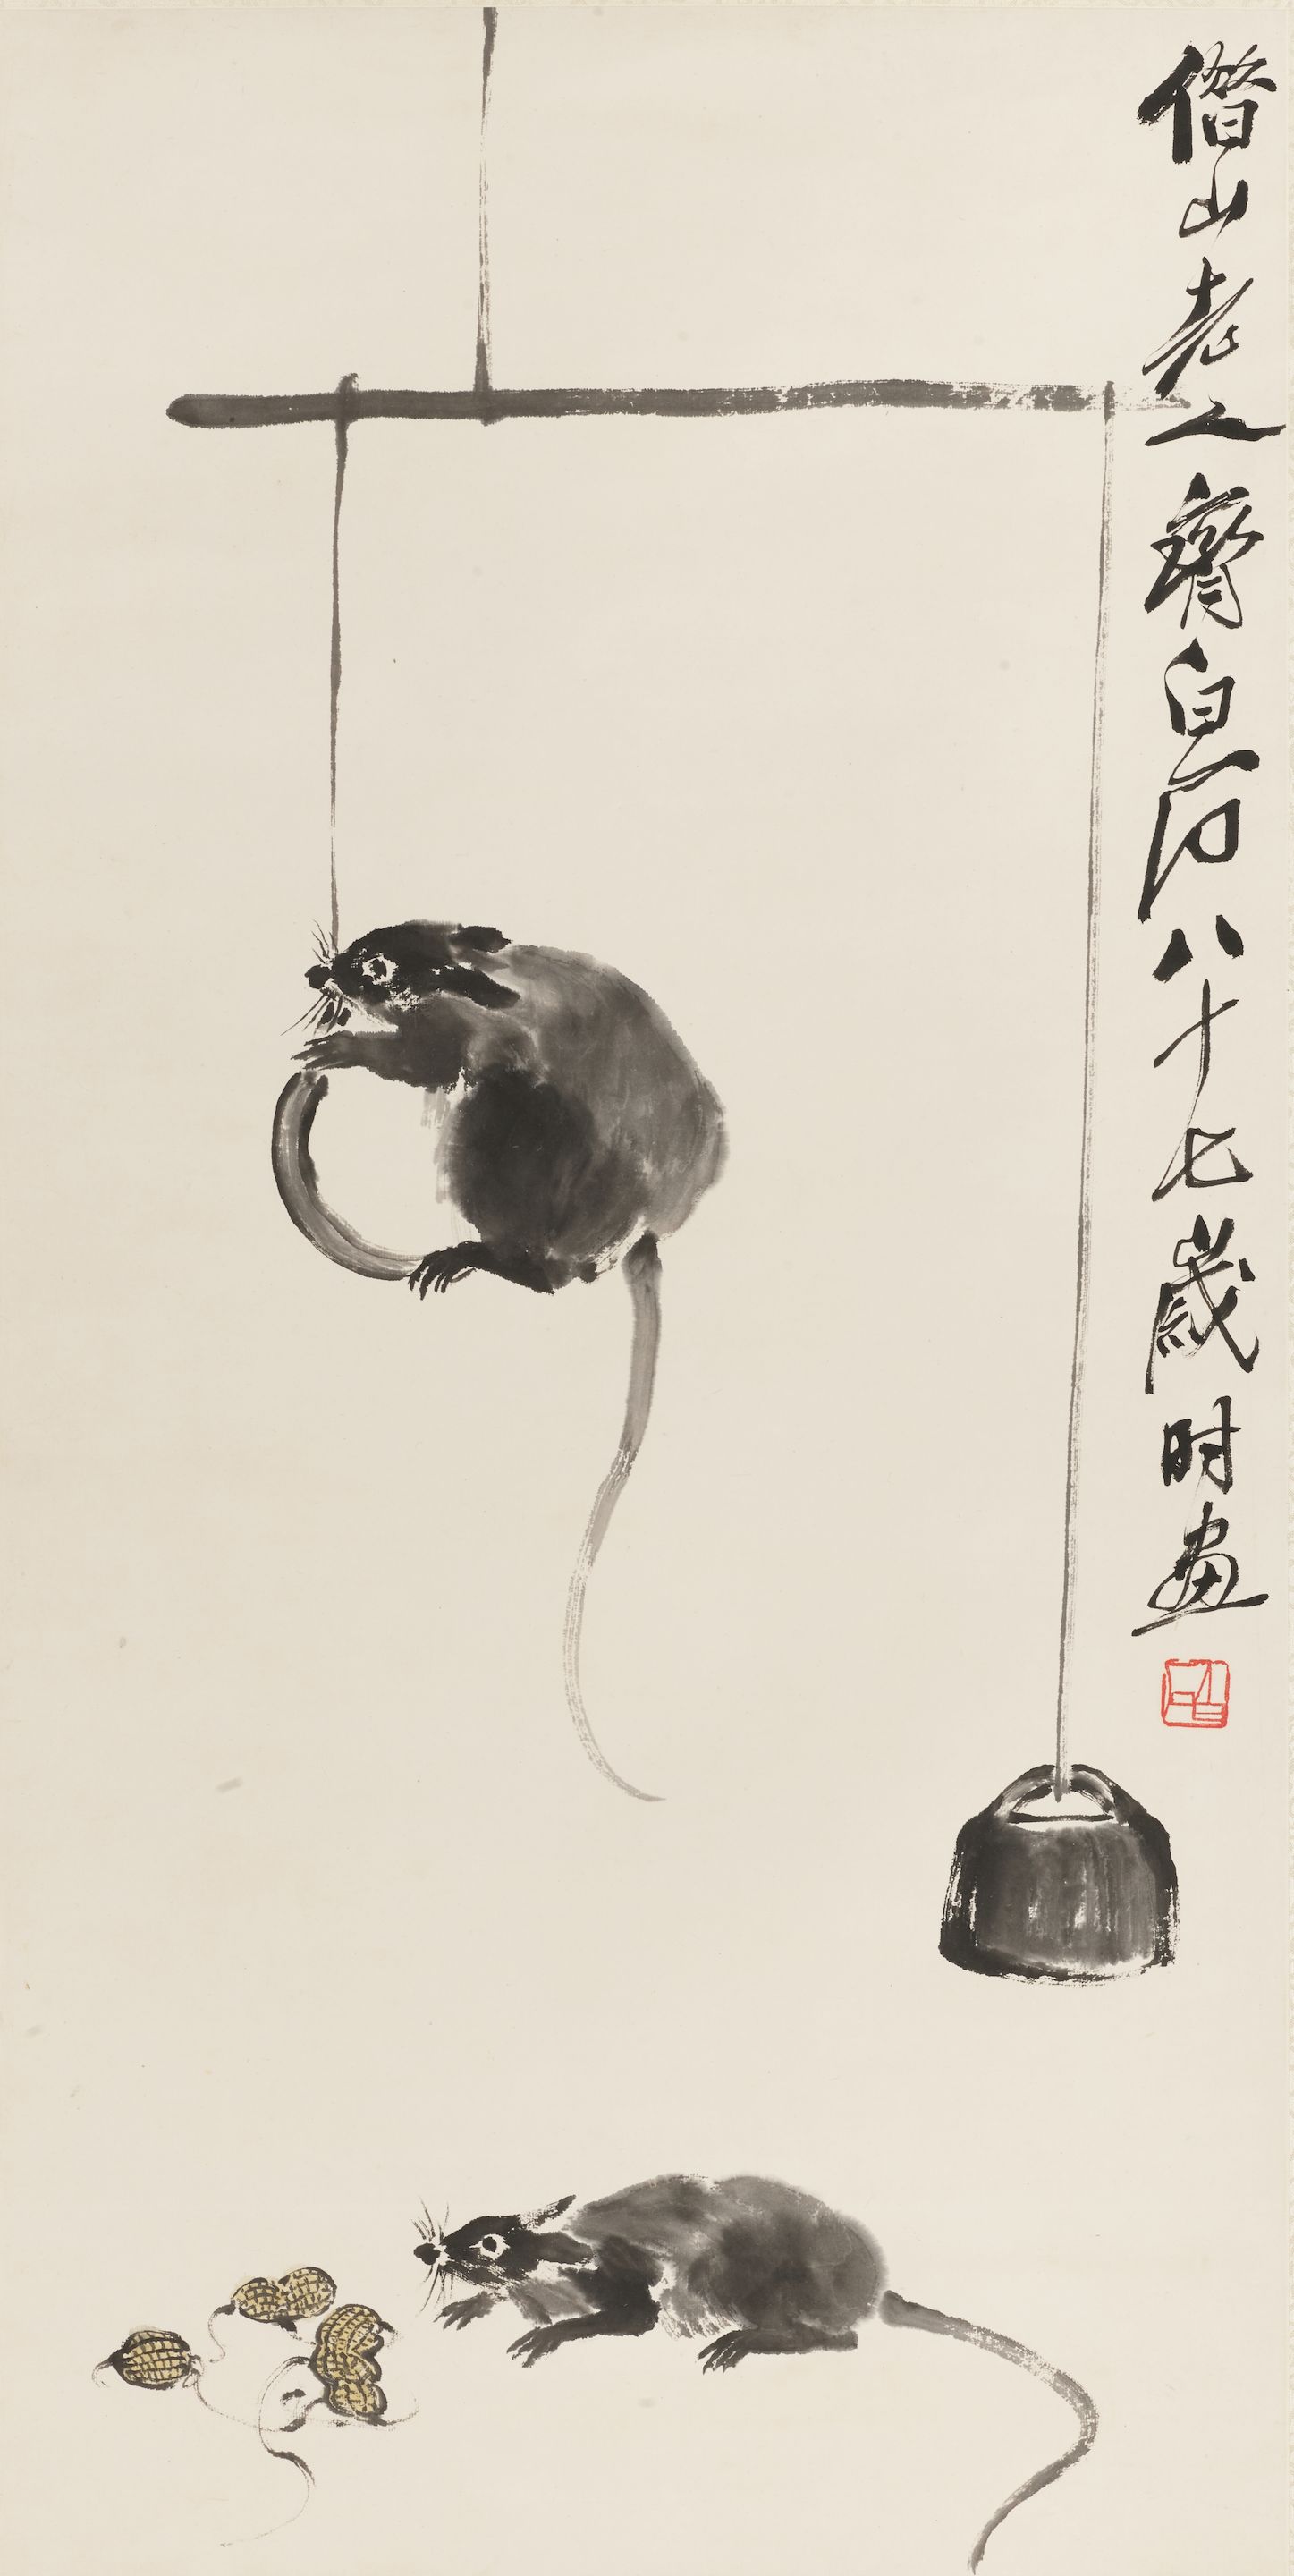 借山老人齊白石八十七歲时畫